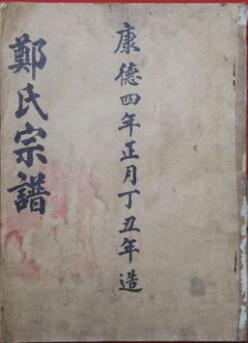 康德四年正月丁丑年造
鄭氏宗譜